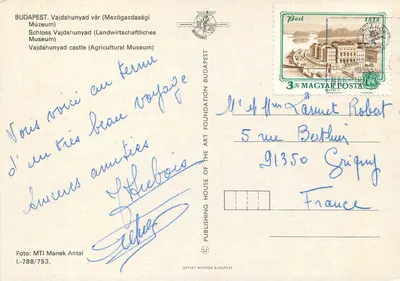 BUDAPEST. Vajdahunyad vár (Mezőgazdasági
Múzeum)
Schloss Vajdahunyad (Landwirtschaftliches
Museum)
Vajdahunyad castle (Agricultural Museum)
Pest 1872
3 Ft MAGYAR POSTA
Nous voici au terme
d'un très beau voyage
Sincères amitiés
© PUBLISHING HOUSE OF THE ART FOUNDATION BUDAPEST
Mr et Mme Lannet Robert
5 rue Berthier
91350 Grigny
France
Foto: MTI Manek Antal
I.-788/753.